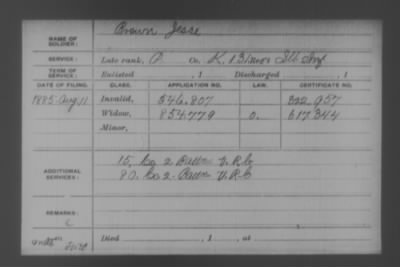 NAME OF SOLDIER: Brown Jesse
SERVICE: Late rank, P Co. K, 13 Ill Inf
TERM OF SERVICE: Enlisted , 1 Discharged , 1
DATE OF FILING. CLASS. APPLICATION NO. LAW. CERTIFICATE NO.
1885 Aug 11 Invalid, 546.807 322.957
Widow, 854.779 0. 617.344
Minor,
ADDITIONAL SERVICES: 15, Co 2 Battn V.R.C
80. Co 2. Battn V.R.C
REMARKS:
C
Died , 1 , at